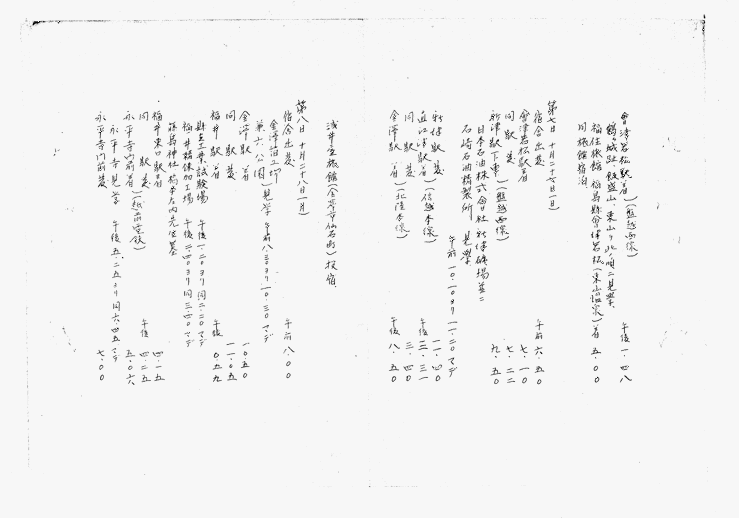 會津若松駅着 (磐越西線) 午後 一・四八
鶴ヶ城址、飯盛山、東山ヲ此ノ順ニ見學、
福住旅館 福島縣會津若松(東山温泉)着 五・〇〇
同旅館宿泊、
第七日 十月二十七日(日)
宿舎出発 午前 六・五〇
會津若松駅着 七・一〇
同 駅 発 (磐越西線) 七・二二
新津駅下車 九・五〇
日本石油株式会社 新津礦場並ニ
石崎石油精製所 見學、
午前 一〇・一〇ヨリ 一一・二〇マデ
新津 駅 発 一一・四〇
直江津駅着 (信越本線) 午後 三・三一
同 駅 発 三・四〇
金澤 駅 着 (北陸本線) 午後 八・五〇
浅井屋旅館 (金澤市仙石町) 投宿、
第八日 十月二十八日(月)
宿舎出発 午前 八・〇〇
金澤箔工場
兼六公園 見学 午前八・三〇ヨリ一〇・三〇マデ
金澤 駅 着 一〇・五〇
同 駅 発 一一・〇五
福井 駅 着 午後 〇・五九
縣立工業試験場 午後一・二〇ヨリ 同二・二〇マデ
福井精練加工場 午後二・四〇ヨリ 同三・四〇マデ
藤島神社 橋本左内先生墓
福井東口駅着 四・一五
同 駅 発 午後 四・二五
永平寺門前着 (越前電鉄) 五・〇六
永平寺見学 午後五・二五ヨリ同六・四五マデ
永平寺門前発 七・〇〇